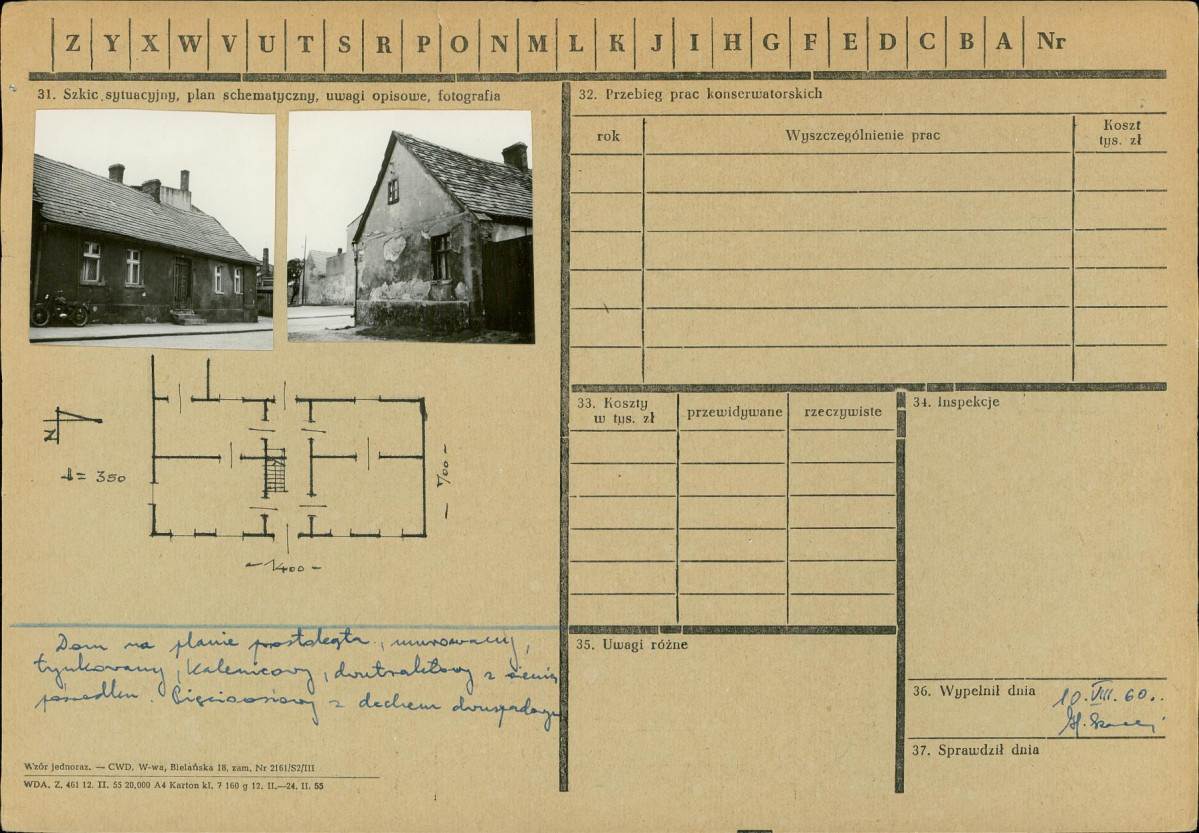 Z Y X W V U T S R P O N M L K J I H G F E D C B A Nr
31. Szkic sytuacyjny, plan schematyczny, uwagi opisowe, fotografia
N
= 350
700
1400
Dom na planie prostokąta, murowany,
tynkowany, kalenicowy, dwutraktowy z sienią
pośrodku. Pięcioosiowy z dachem dwuspadowym
Wzór jednoraz. — CWD. W-wa, Bielańska 18, zam. Nr 2161/S2/III
WDA. Z. 461 12. II. 55 20.000 A4 Karton kl. 7 160 g 12. II.—24. II. 55
32. Przebieg prac konserwatorskich
rok
Wyszczególnienie prac
Koszt
tys. zł
33. Koszty
w tys. zł
przewidywane
rzeczywiste
34. Inspekcje
35. Uwagi różne
36. Wypełnił dnia
10. VIII. 60.
37. Sprawdził dnia